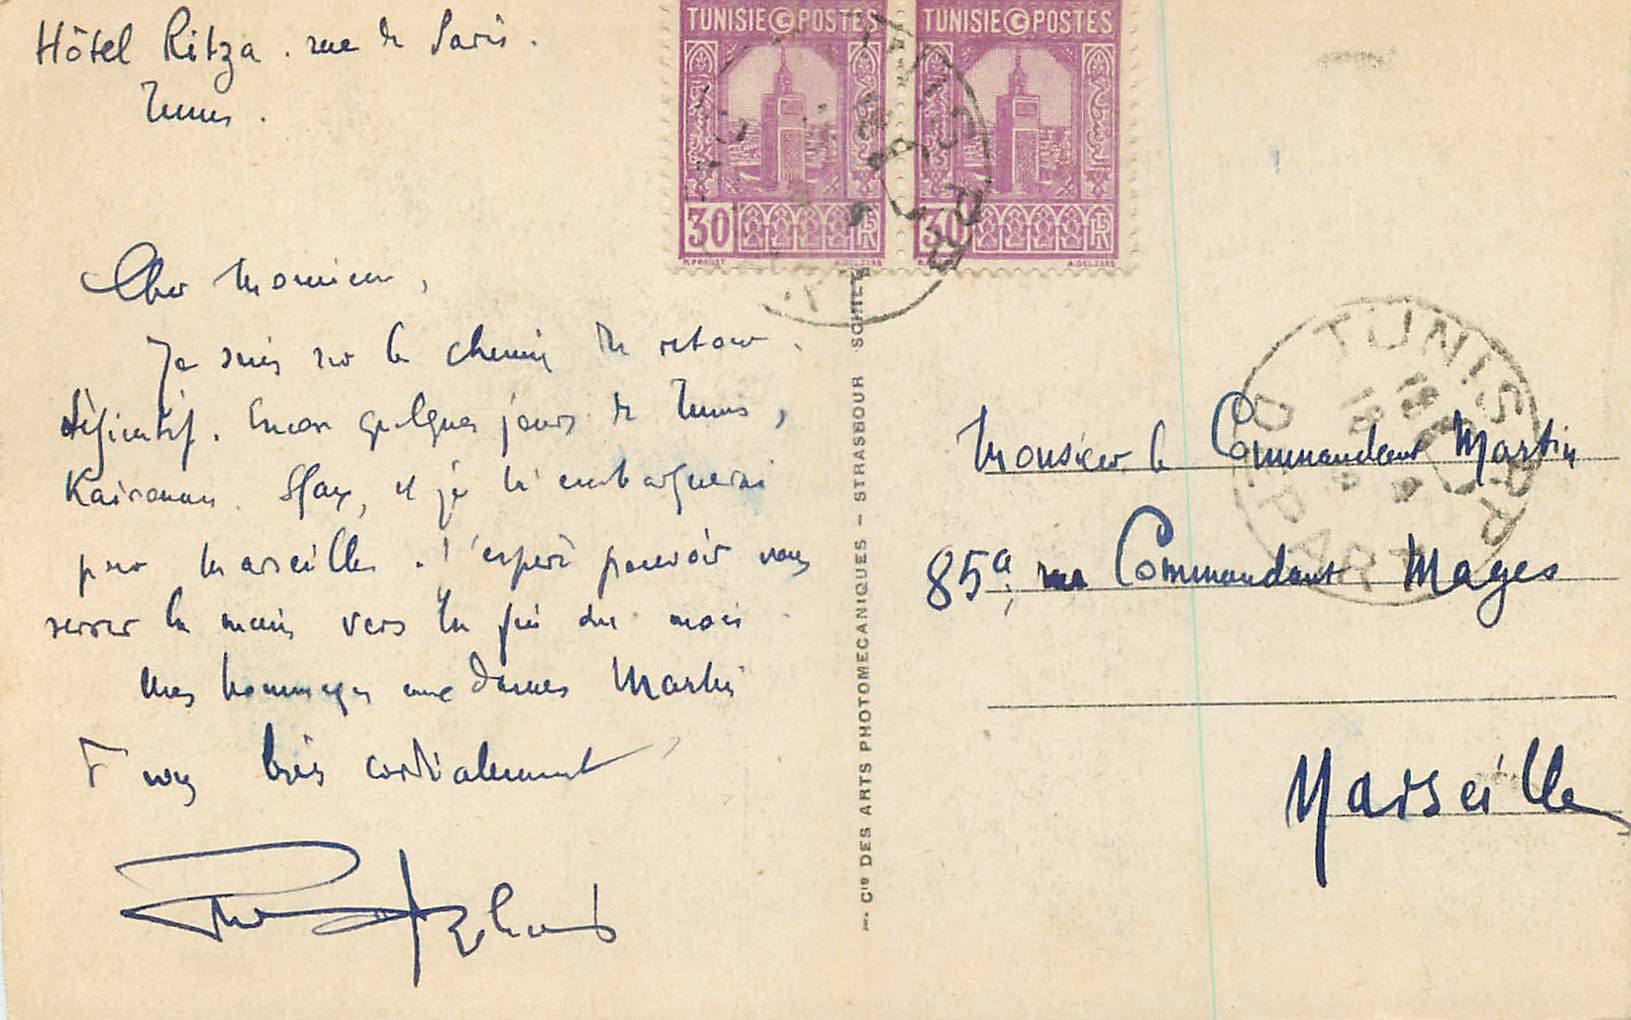 Hôtel Ritza . rue de Paris .
Tunis .
Cher Monsieur,
Je suis sur le chemin du retour .
définitif. Encore quelques jours de Tunis,
Kairouan . Sfax, et je m'embarquerai
pour Marseille . J'espère pouvoir vous
serrer la main vers la fin du mois .
Mes hommages aux dames Martin
Et vous très cordialement
TUNISIE POSTES
30
RF
TUNISIE POSTES
30
RF
Cie DES ARTS PHOTOMECANIQUES - STRASBOURG SCHILT
TUNIS R.P.
DEPART
Monsieur le Commandant Martin
85a, rue Commandant Mages
Marseille